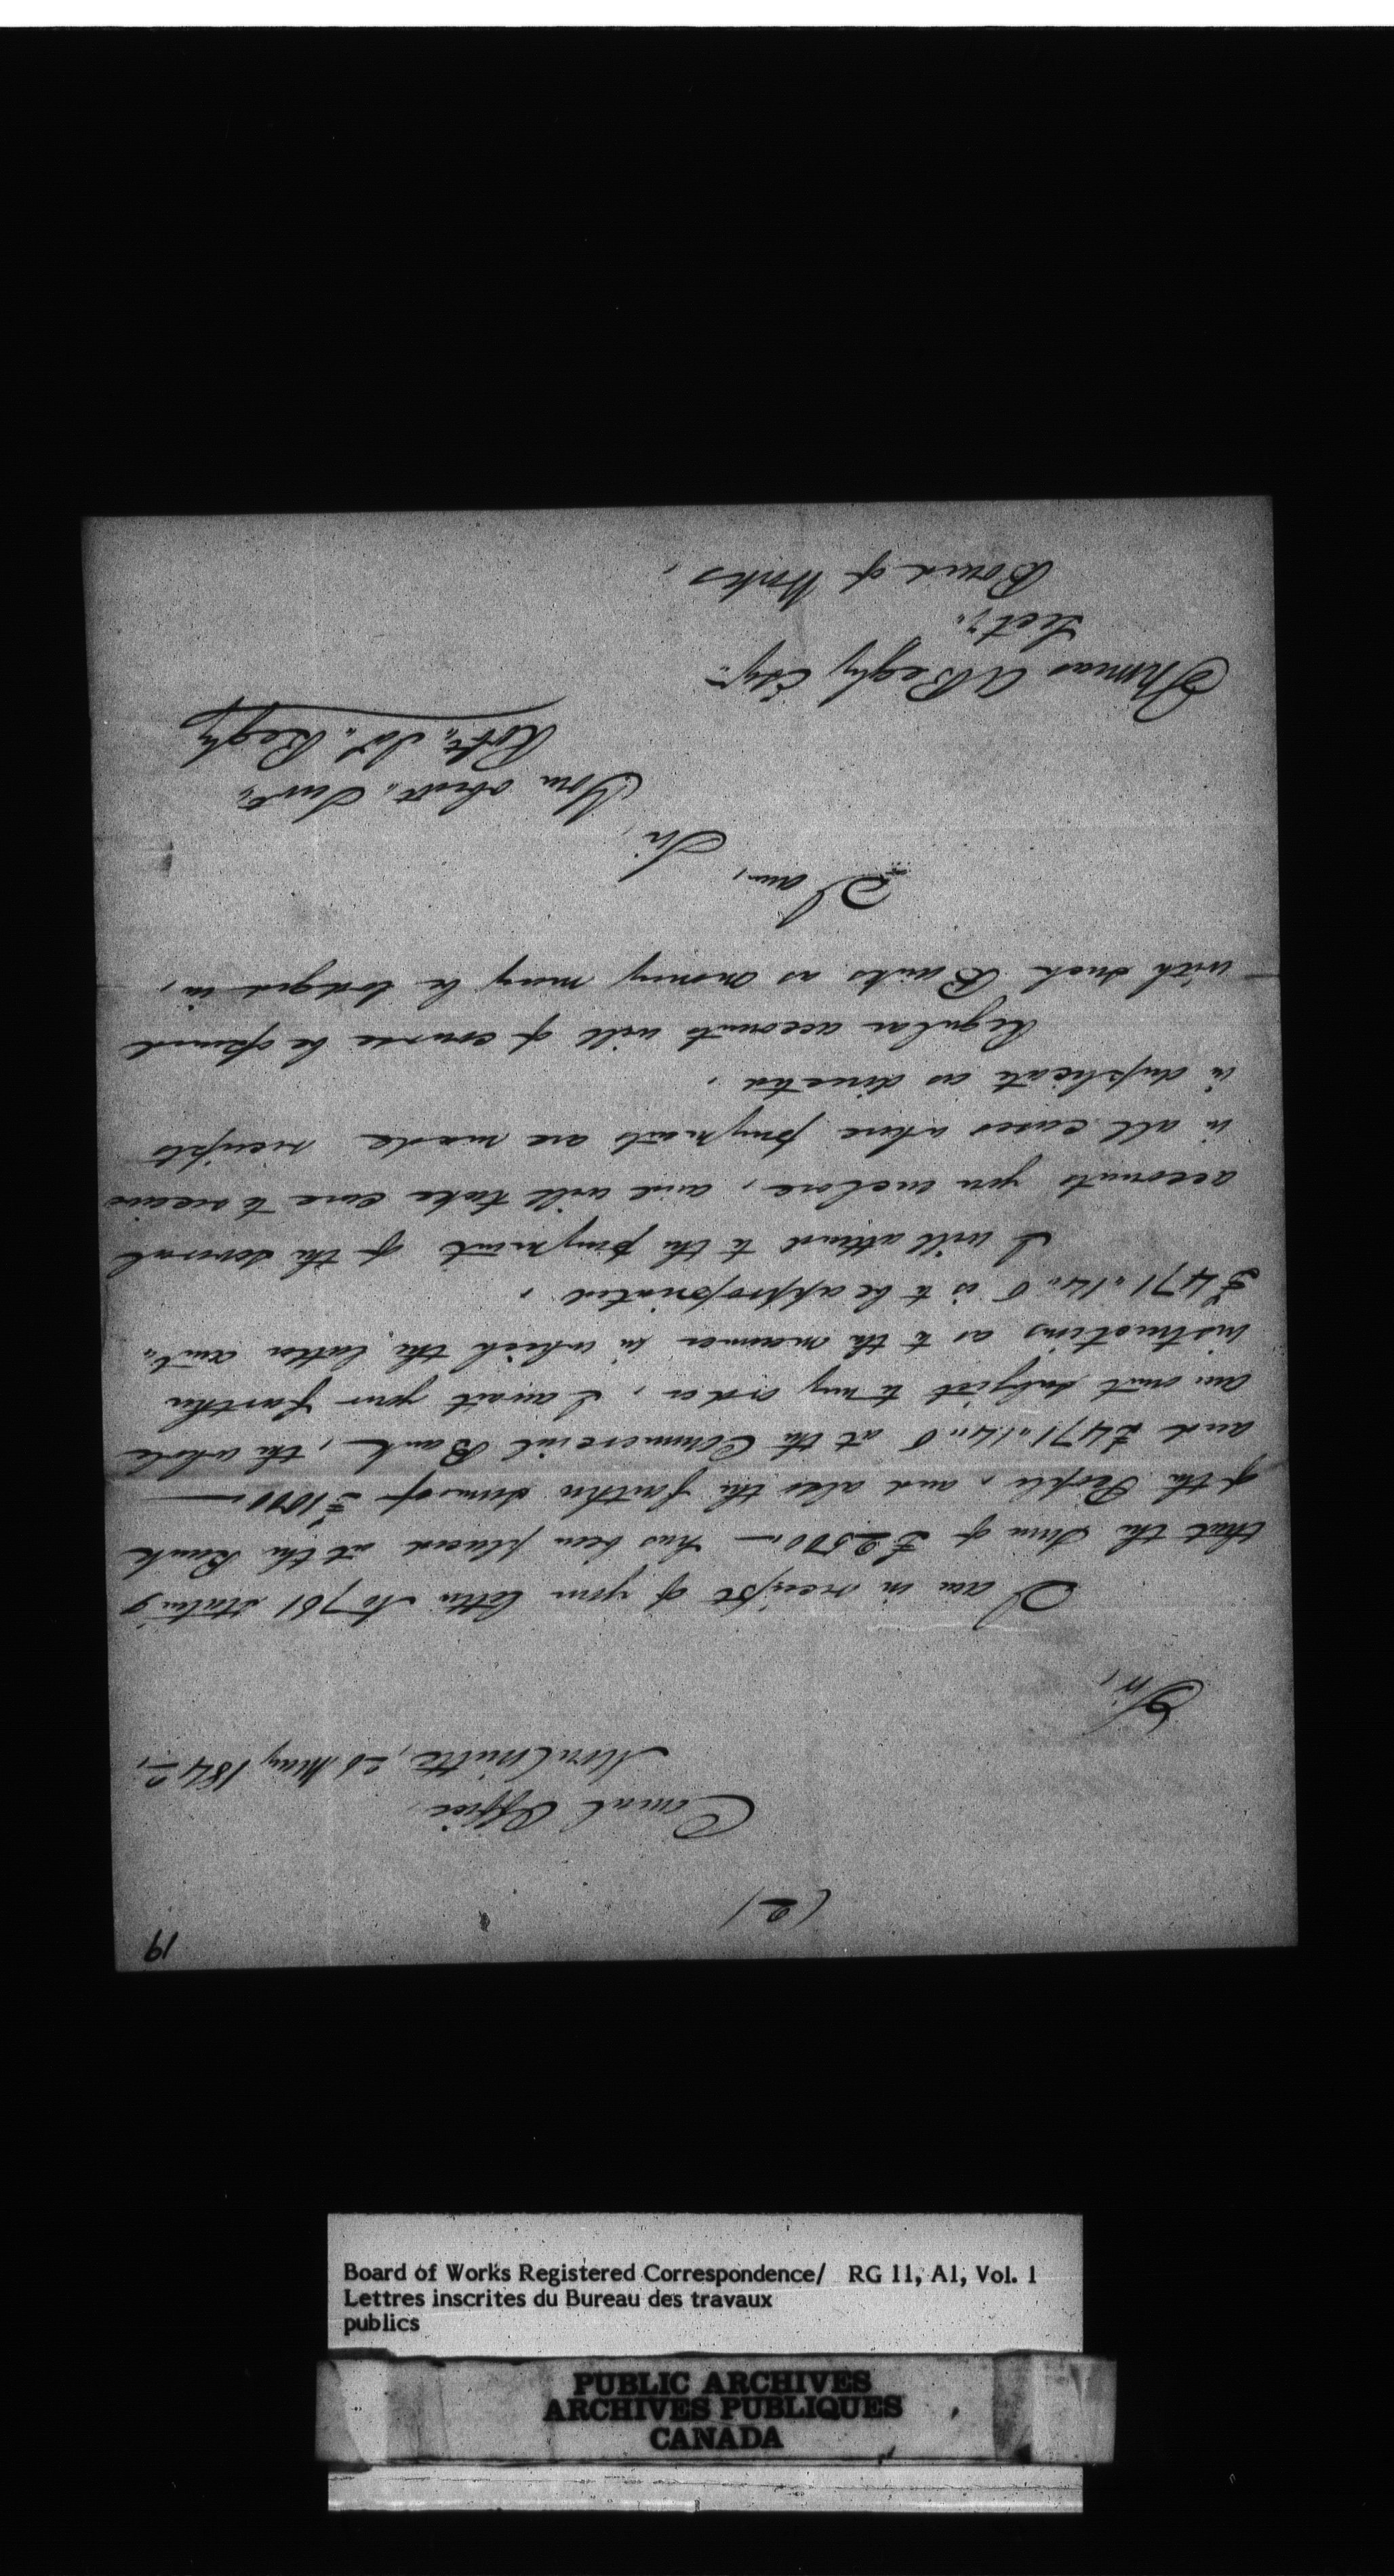 19
(2)
Canal Office,
26 May 1842,
Sir,
I am in receipt of your letter No 761 stating
that the Sum of £2500.— has been placed at the Bank
of the People, and also the further sum of £1000.—
and £471..14..0 at the Commercial Bank, the whole
am't subject to my order, I await your further
instructions as to the manner in which the latter am't..
£471..14..0 is to be appropriated.
I will attend to the payment of the several
accounts you enclose, and will take care to receive
in all cases where payments are made receipts
in duplicate as directed.
Regular accounts will of course be opened
with such Banks as money may be lodged in,
I am,
Sir,
Your obedt.. Servt..
Begly
Thomas A Begly Esqr
Sect..
Board of Works,
Board of Works Registered Correspondence/ RG 11, A1, Vol. 1
Lettres inscrites du Bureau des travaux
publics
PUBLIC ARCHIVES
ARCHIVES PUBLIQUES
CANADA